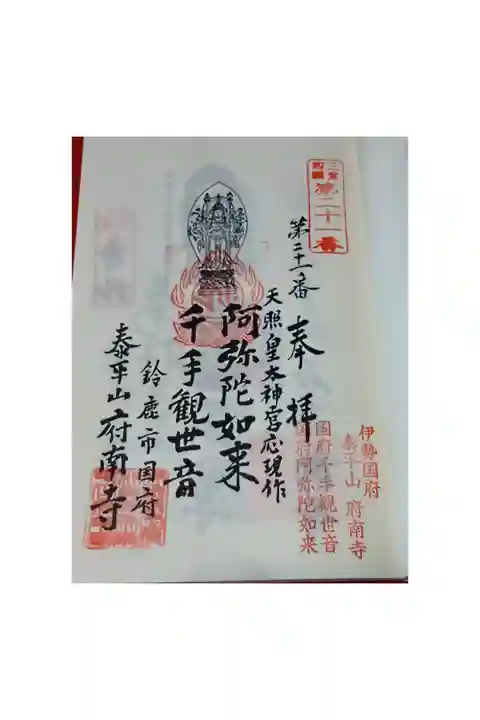 三重四国
第二十一番
第二十一番
奉拝
天照皇太神宮応現作
阿弥陀如来
千手観世音
鈴鹿市国府
泰平山府南寺
伊勢国府
泰平山 府南寺
国府千手観世音
国府阿弥陀如来